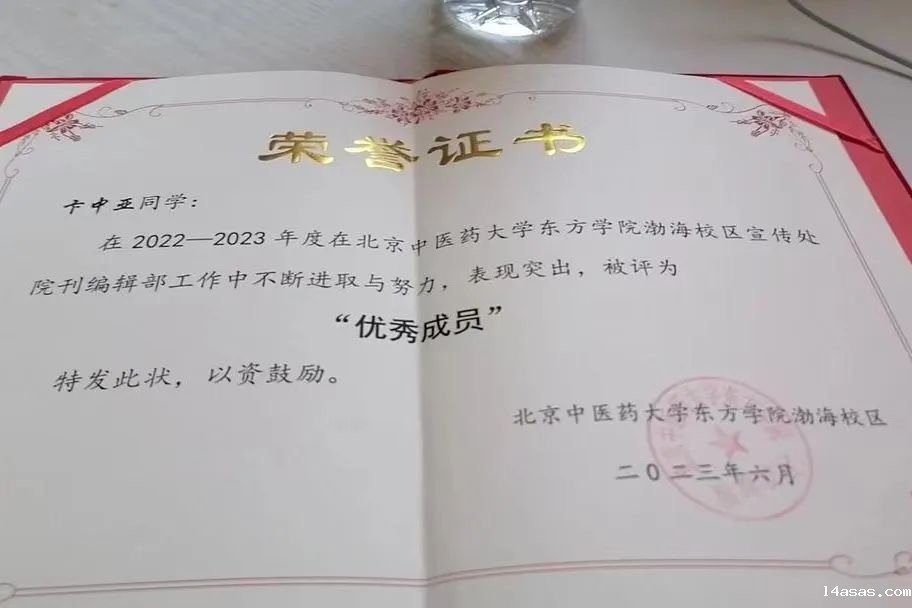 荣誉证书
卡中亚同学：
在 2022—2023 年度在北京中医药大学东方学院渤海校区宣传处
院刊编辑部工作中不断进取与努力，表现突出，被评为
“优秀成员”
特发此状，以资鼓励。
北京中医药大学东方学院渤海校区
二〇二三年六月
14asas.com